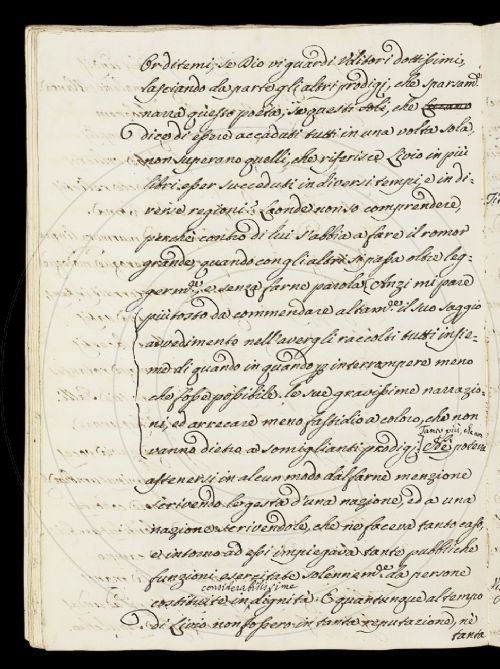 Or ditemi, se Dio vi guardi Uditori dottissimi,
lasciando da parte gli altri prodigj, che sparsam.te
narra questo poeta, se questi soli, che
dice di essere accaduti tutti in una volta sola,
non superano quelli, che riferisce Livio in più
libri esser succeduti in diversi tempi, e in di-
verse regioni? Laonde non so comprendere,
perchè contro di lui s'abbia a fare il romor
grande, quando con gli altri si passa oltre leg-
germ.te, e senza farne parola. Anzi mi pare
piuttosto da commendare altam.te il suo saggio
avvedimento nell'avergli raccolti tutti insie-
me di quando in quando per interrompere meno
che fosse possibile le sue gravissime narrazio-
ni, ed arrecare meno fastidio a coloro, che non
Tanto più, che non
vanno dietro a somiglianti prodigj. Chè potere
astenersi in alcun modo dal farne menzione
scrivendo le gesta d'una nazione, ed a una
nazione scrivendole, che ne faceva tanto caso,
e intorno ad essi impiegava tante pubbliche
funzioni esercitate solennem.te da persone
considerabilissime
costituite in dignità. E quantunque al tempo
di Livio non fossero in tanta reputazione, nè
tanta